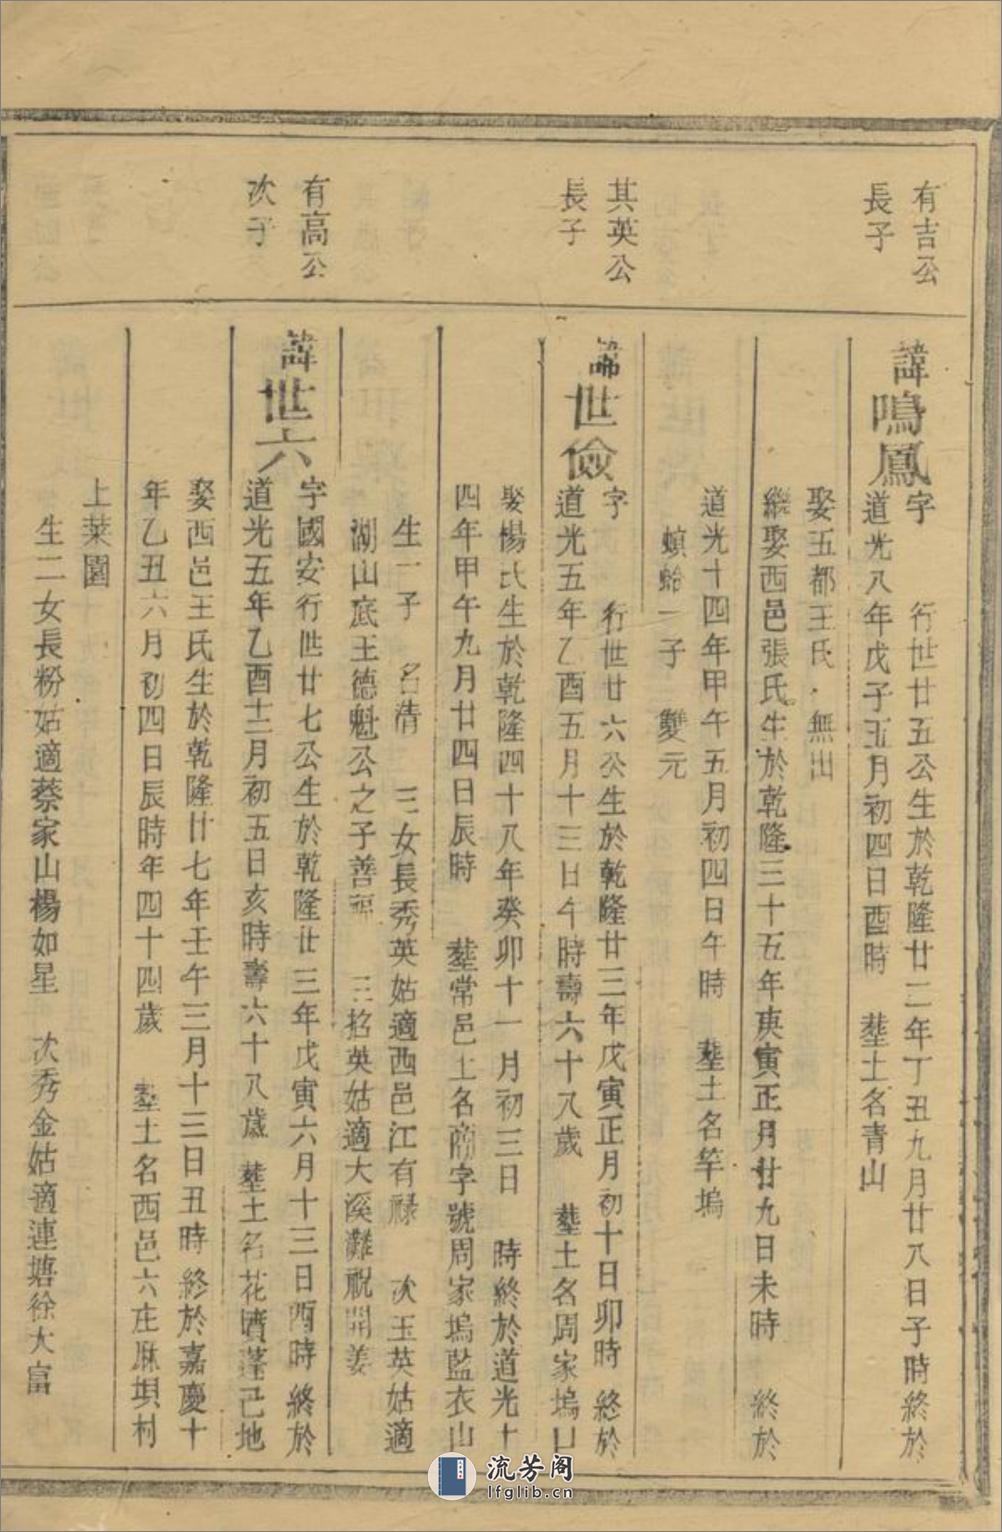 有吉公
長子
諱鳴鳳
字 行世廿五公生於乾隆廿二年丁丑九月廿八日子時終於
道光八年戊子五月初四日酉時 塟土名青山
娶五都王氏無出
繼娶西邑張氏生於乾隆三十五年庚寅正月廿九日未時 終於
道光十四年甲午五月初四日午時 塟土名竿塢
螟蛤一子 雙元
其英公
長子
諱世儉
字 行世廿六公生於乾隆廿三年戊寅正月初十日卯時 終於
道光五年乙酉五月十三日午時壽六十八歲 塟土名周家塢口
娶楊氏生於乾隆四十八年癸卯十一月初三日 時終於道光十
四年甲午九月廿四日辰時 塟常邑土名商字號周家塢藍衣山
生一子 名倩 三女長秀英姑適西邑江有祿 次玉英姑適
湖山底王德魁公之子善福 三招英姑適大溪灘祝開姜
有高公
次子
諱世六
字國安行世廿七公生於乾隆廿三年戊寅六月十三日酉時 終於
道光五年乙酉十二月初五日亥時壽六十八歲 塟土名花墳蓬己地
娶西邑王氏生於乾隆廿七年壬午三月十三日丑時 終於嘉慶十
年乙丑六月初四日辰時年四十四歲 塟土名西邑六庄麻垻村
上菜園
生二女長粉姑適蔡家山楊如星 次秀金姑適連塘徐大富
流芳阁
lfglib.cn